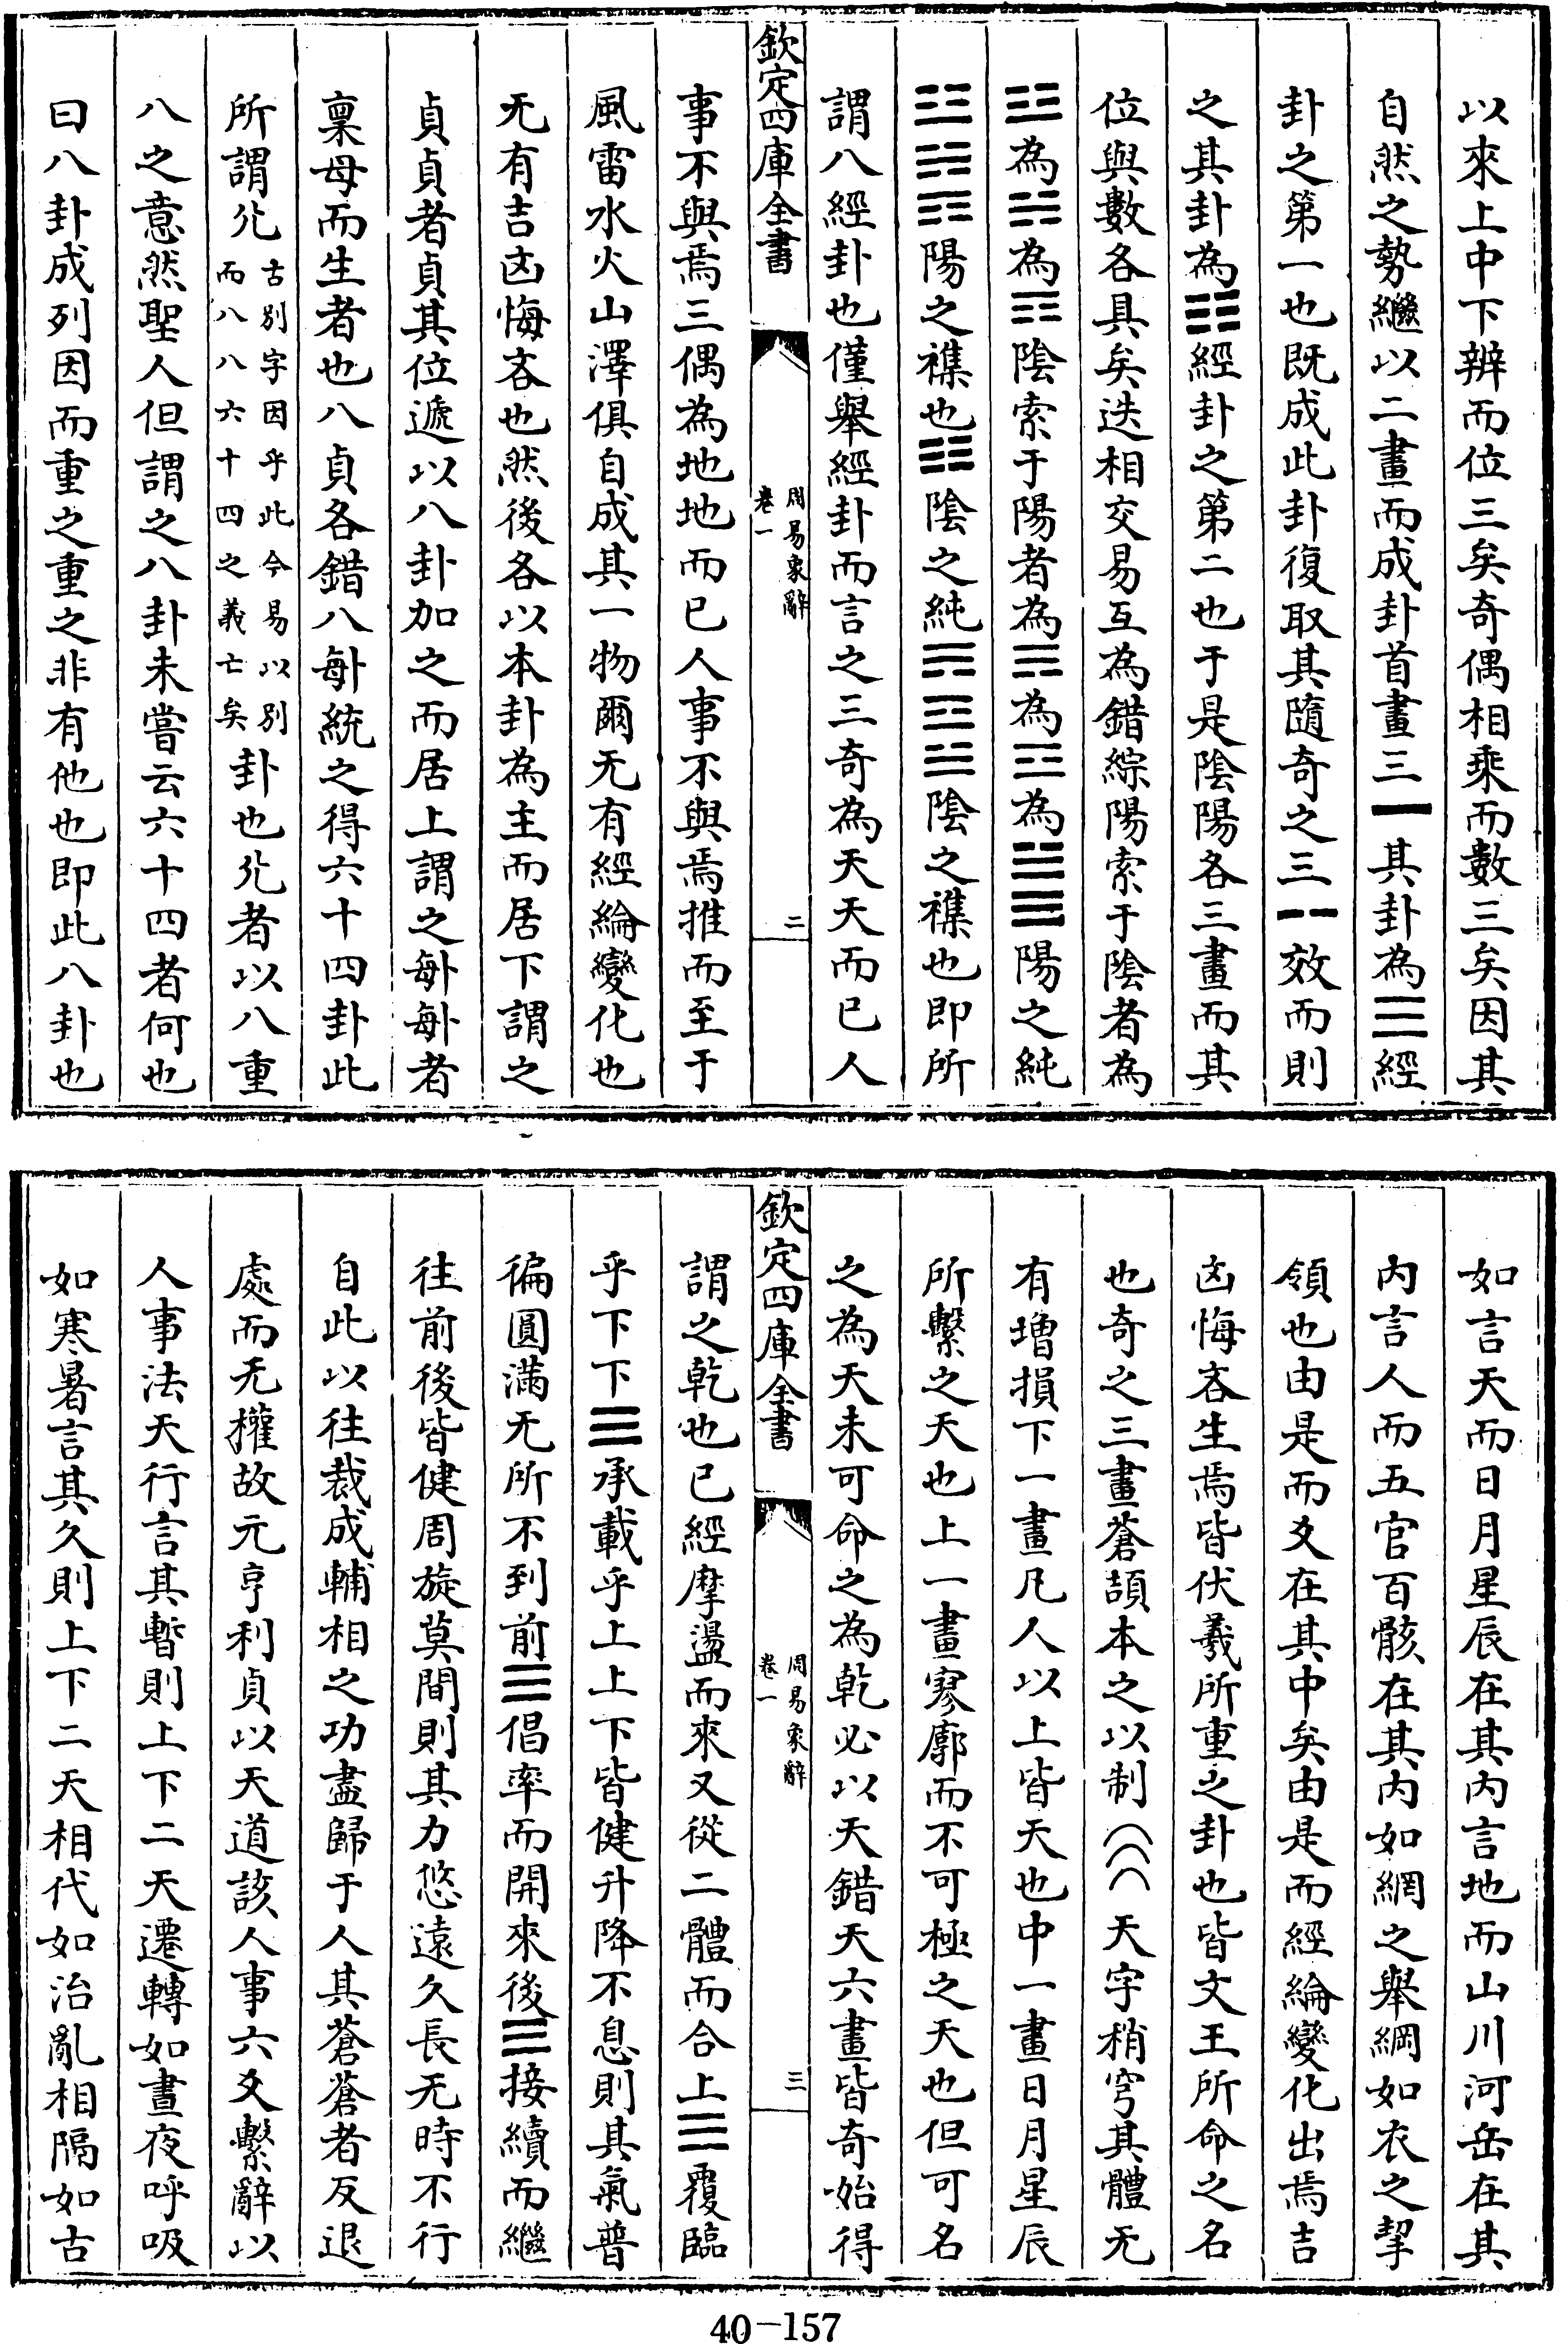 以來上中下辨而位三矣奇偶相乘而數三矣因其
自然之勢繼以二畫而成卦首畫三⚊其卦為☰經
卦之第一也既成此卦復取其隨奇之三⚋效而則
之其卦為☷經卦之第二也于是陰陽各三畫而其
位與數各具矣迭相交易互為錯綜陽索于陰者為
☳為☵為☶陰索于陽者為☴為☲為☱☰陽之純
☳☵☶陽之襍也☷陰之純☴☲☱陰之襍也即所
謂八經卦也僅舉經卦而言之三奇為天天而已人
欽定四庫全書
周易象辭
卷一
二
事不與焉三偶為地地而已人事不與焉推而至于
風雷水火山澤俱自成其一物爾无有經綸變化也
无有吉凶悔吝也然後各以本卦為主而居下謂之
貞貞者貞其位遞以八卦加之而居上謂之𠧩𠧩者
稟母而生者也八貞各錯八𠧩統之得六十四卦此
所謂𠔁古別字因乎此今易以別
而八八六十四之義亡矣卦也𠔁者以八重
八之意然聖人但謂之八卦未嘗云六十四者何也
曰八卦成列因而重之重之非有他也即此八卦也
如言天而日月星辰在其内言地而山川河岳在其
内言人而五官百骸在其内如網之舉綱如衣之挈
領也由是而爻在其中矣由是而經綸變化出焉吉
凶悔吝生焉皆伏羲所重之卦也皆文王所命之名
也奇之三畫蒼頡本之以制天字稍穹其體无
有增損下一畫凡人以上皆天也中一畫日月星辰
所繫之天也上一畫寥廓而不可極之天也但可名
之為天未可命之為乾必以天錯天六畫皆奇始得
欽定四庫全書
周易象辭
卷一
三
謂之乾也已經摩盪而來又從二體而合上☰覆臨
乎下下☰承載乎上上下皆健升降不息則其氣普
徧圓滿无所不到前☰倡率而開來後☰接續而繼
往前後皆健周旋莫間則其力悠遠久長无時不行
自此以往裁成輔相之功盡歸于人其蒼蒼者反退
處而无權故元亨利貞以天道該人事六爻繫辭以
人事法天行言其暫則上下二天遷轉如晝夜呼吸
如寒暑言其久則上下二天相代如治亂相隔如古
40-157